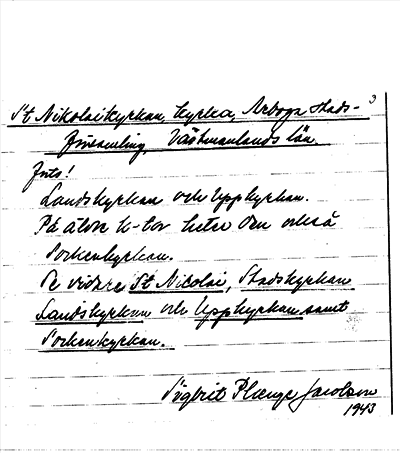 St Nikolaikyrkan, kyrka, Arboga stads-
församling, Västmanlands län.
Jfr!
Landskyrkan och Uppkyrkan.
På äldre k-tor heter den också
Sockenkyrkan.
Se vidare St Nicolai, Stadskyrkan
Landskyrkan och Uppkyrkan samt
Sockenkyrkan.
Sigbrit Plænge Jacobson
1943